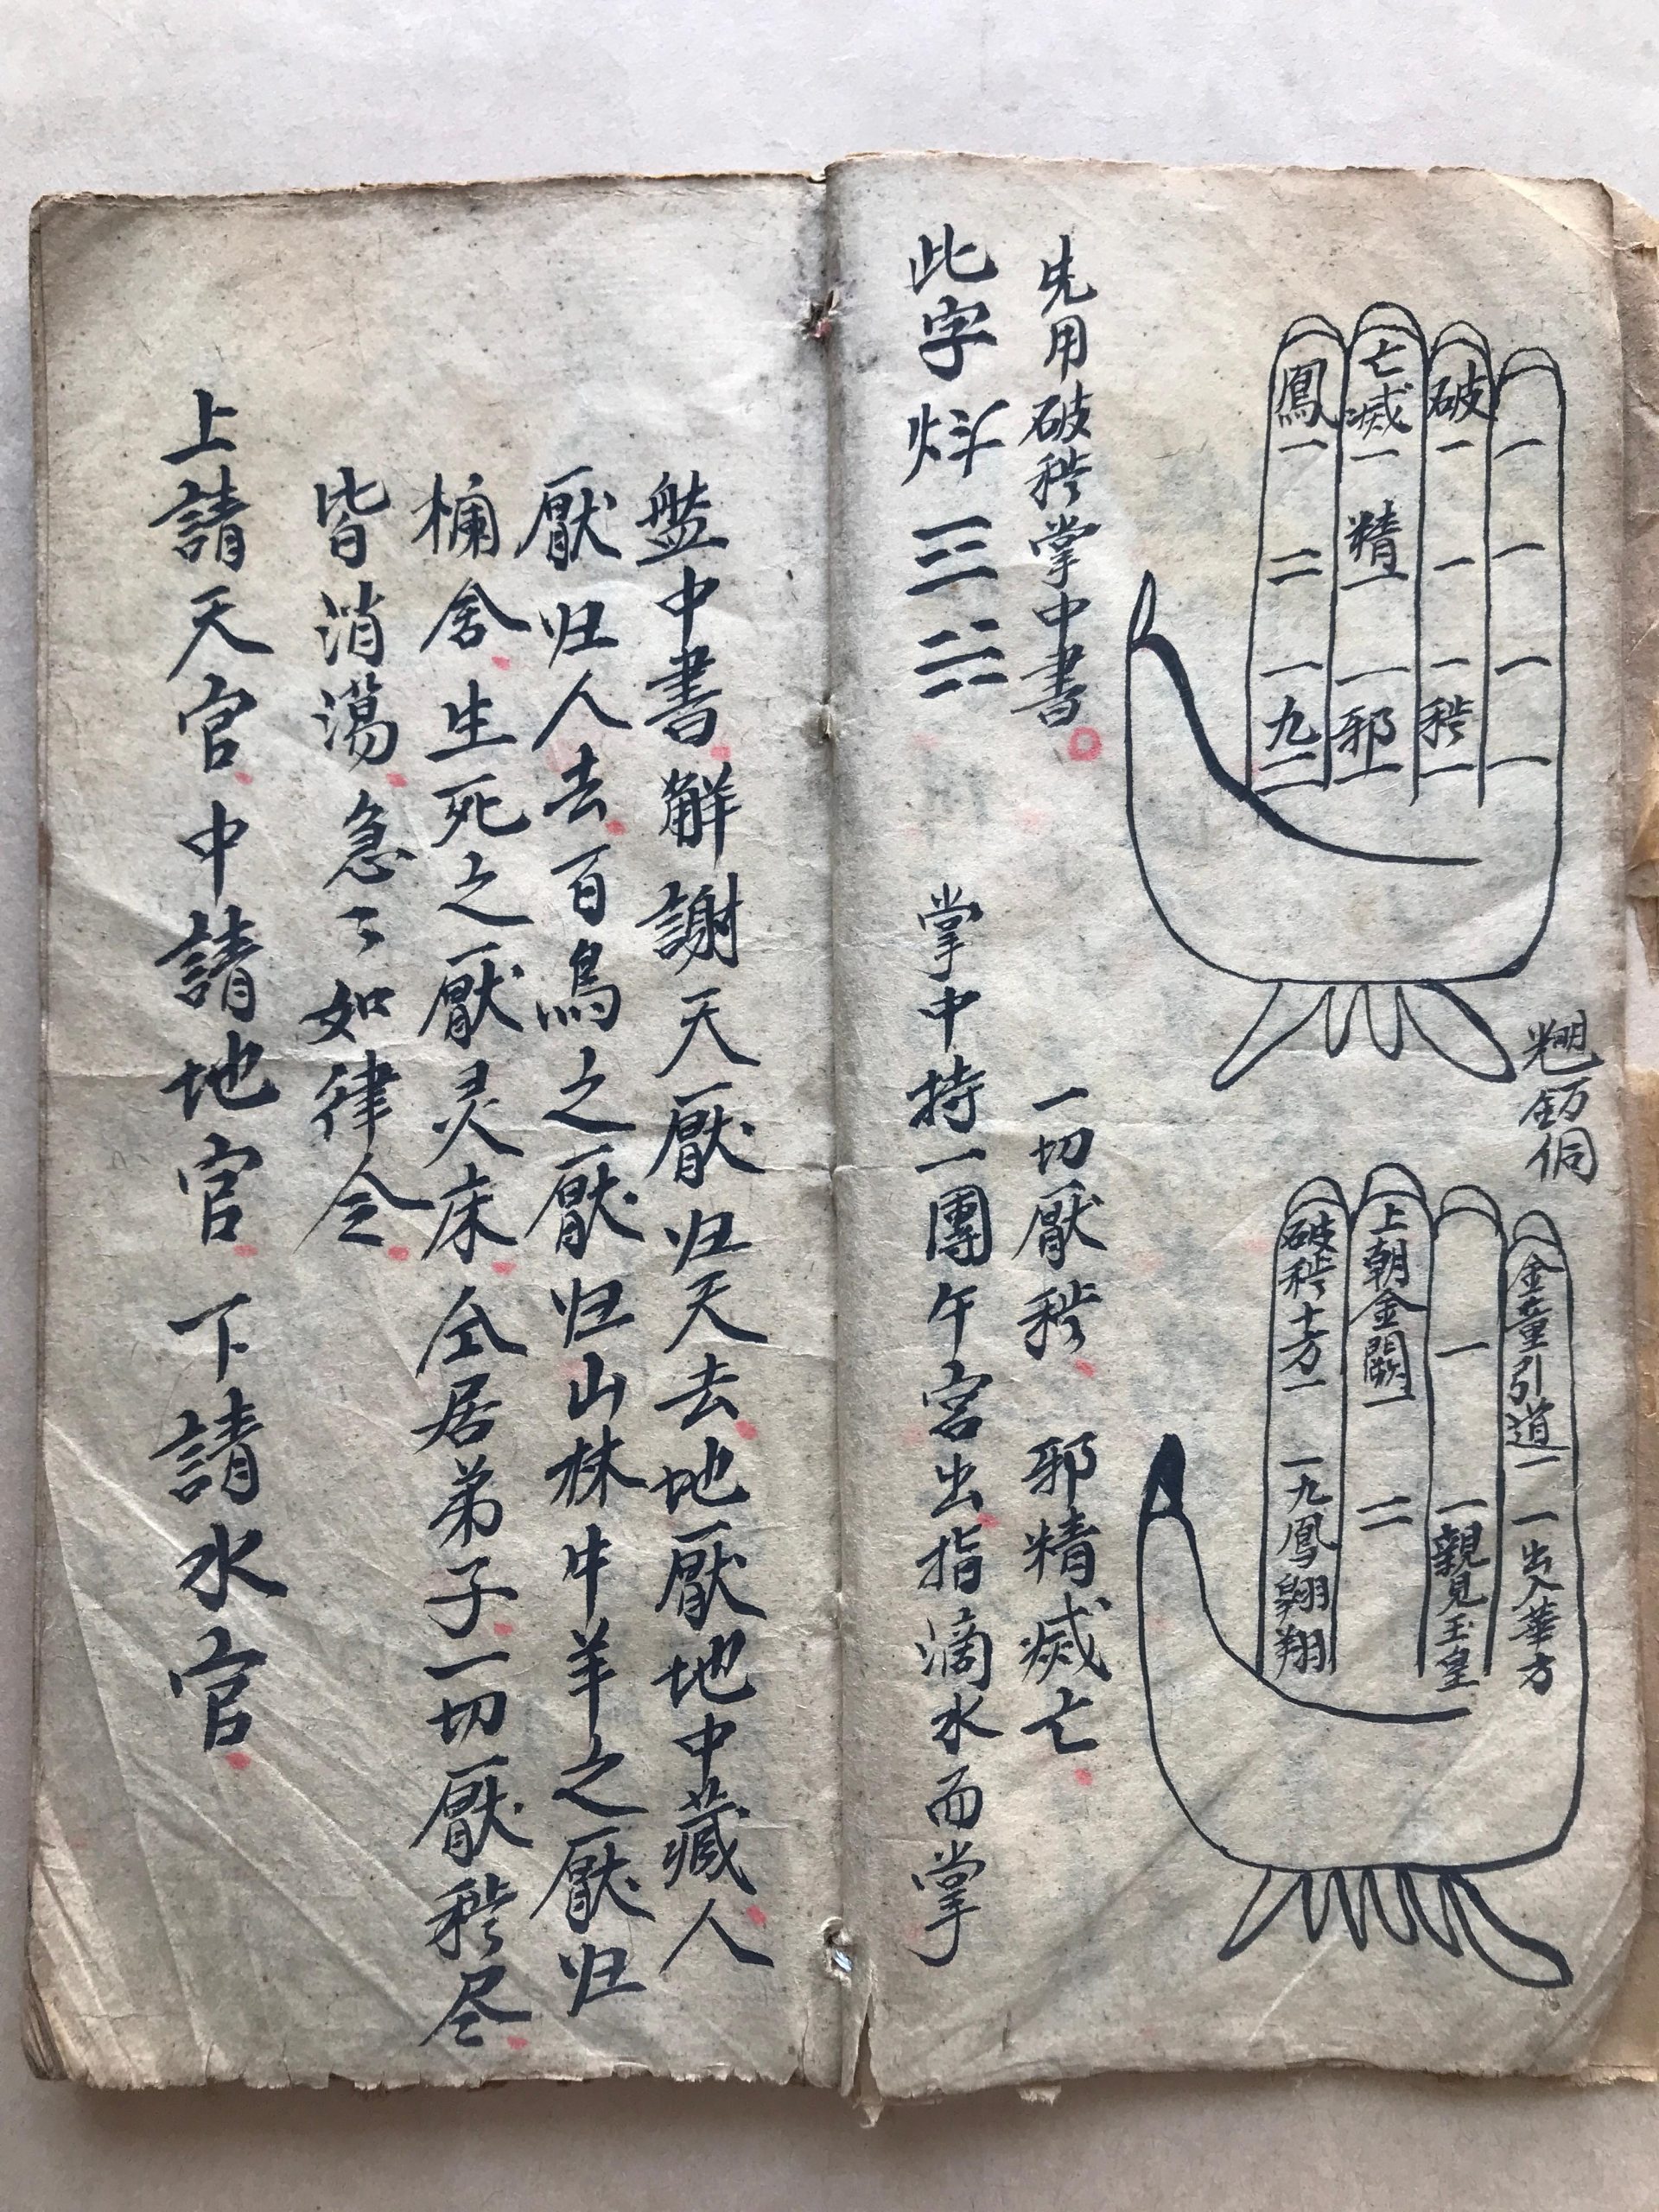 鳳一二一九二
亡滅一精一一邪一
破一一一秽一
一一一一
破秽十方一一九鳳翱翔
上朝金闕一二
一一親見玉皇
金童引道一一出入華方
先用破秽掌中書
一切厭秽邪精滅亡
此字
掌中持一團午宮出指滴水而掌
盤中書解謝天厭归天去地厭地中藏人
厭归人去百鳥之厭归山林牛羊之厭归
欄舍生死之厭灵床仝居弟子一切厭秽尽
皆消蕩急々如律令
上請天官中請地官下請水官